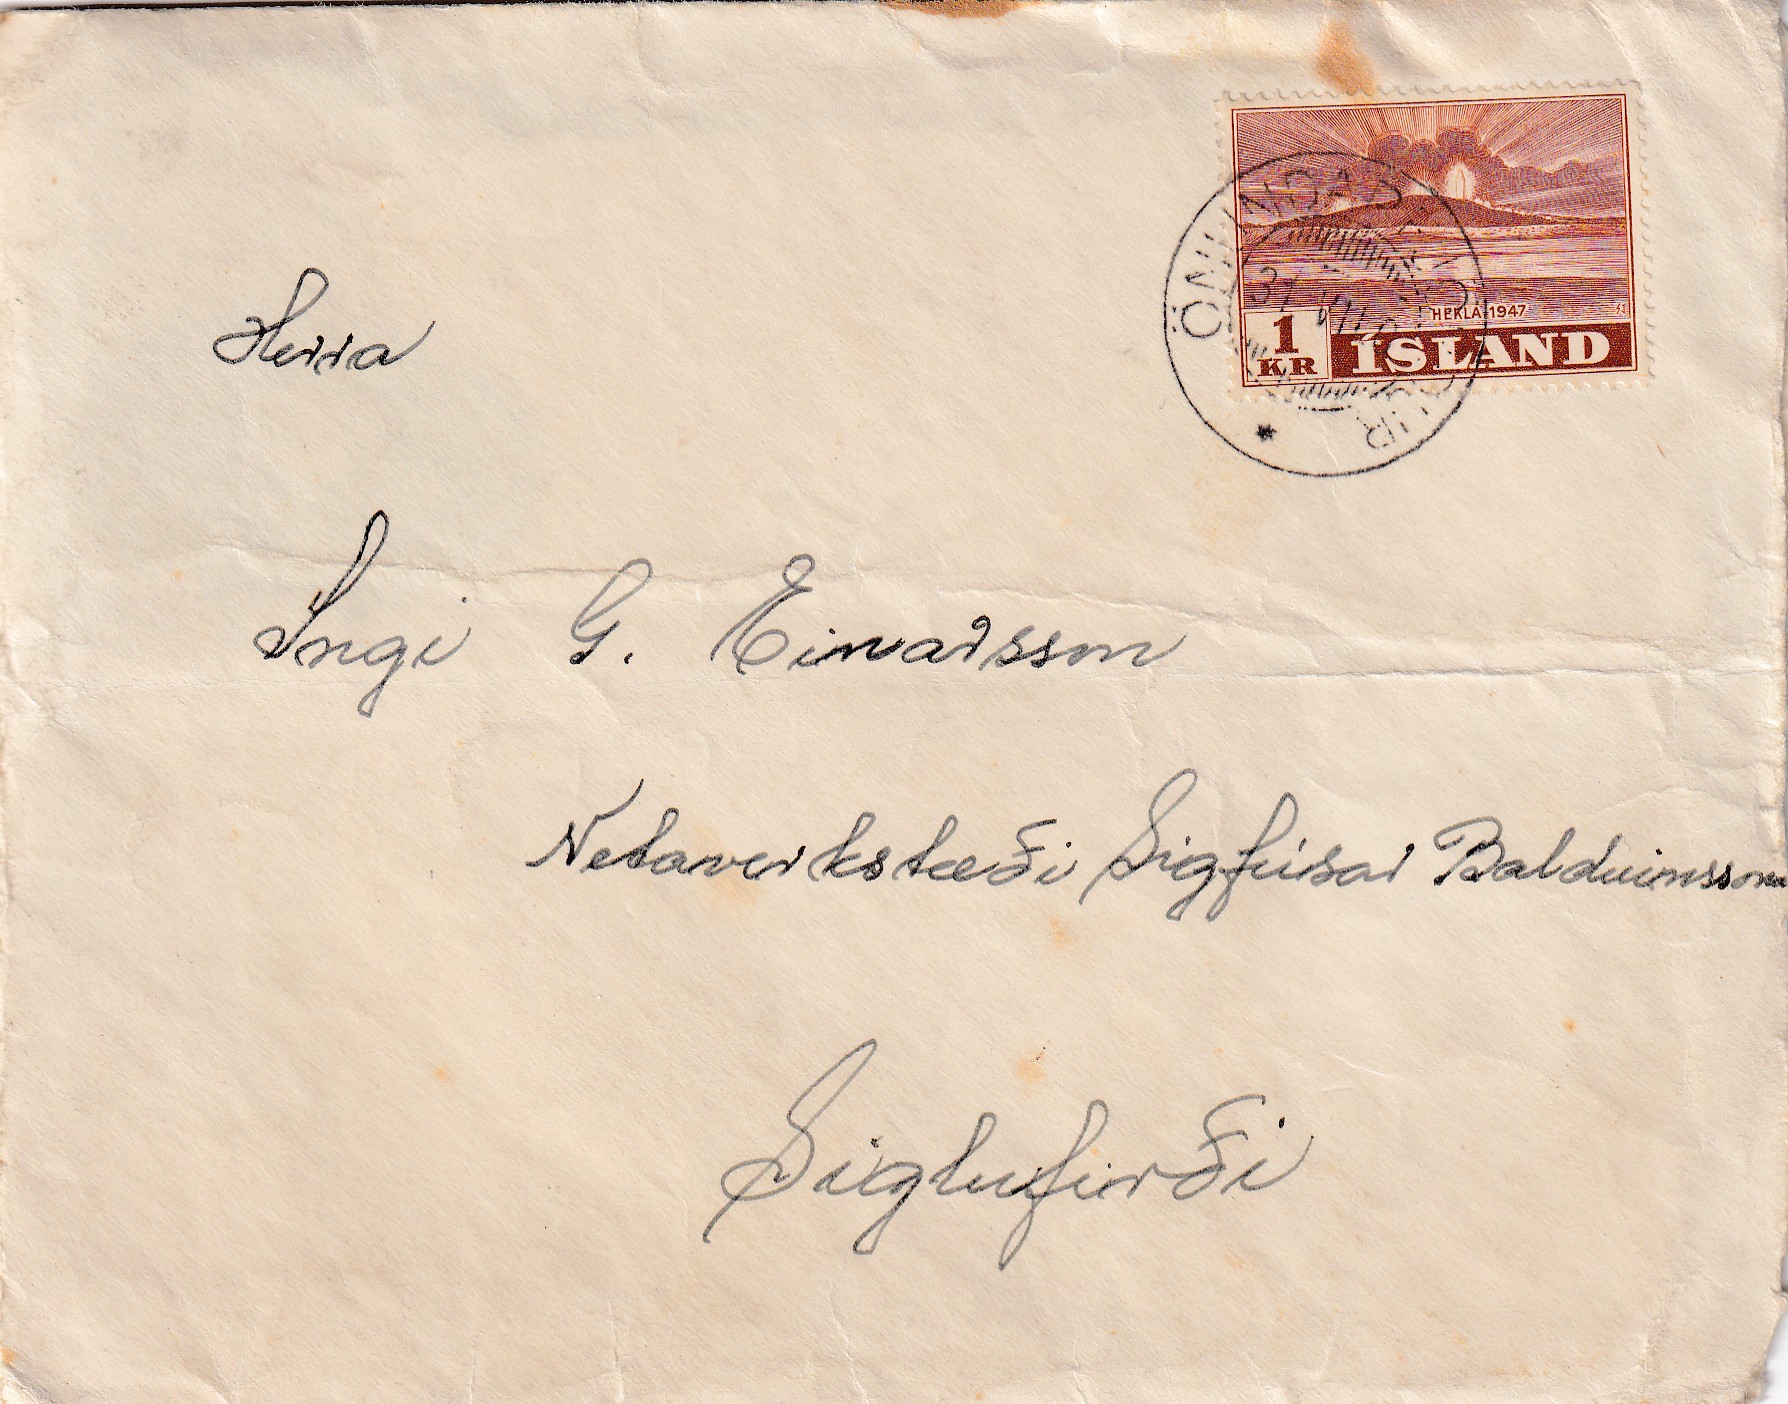 HEKLA 1947
1 KR ÍSLAND
Herra
Ingi G. Einarsson
Netaverkstæði Sigfúsar Baldvinssonar
Siglufirði